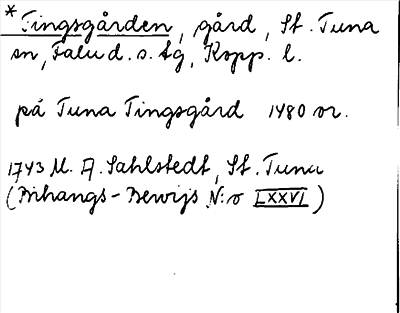 * Tingsgården, gård, St. Tuna
sn, Falu d. s. tg, Kopp. l.
på Tuna Tingsgård 1480 or.
1743 U. A. Sahlstedt, St. Tuna
(Bihangs-Bewijs N:o LXXVI)